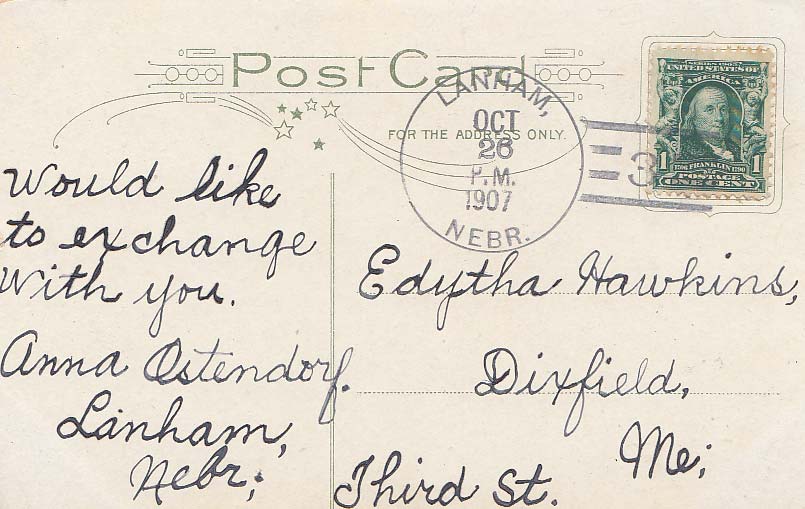 Post Card
FOR THE ADDRESS ONLY.
LANHAM,
OCT
26
P.M.
1907
NEBR.
3
SERIES 1902
UNITED STATES OF
AMERICA
1706 FRANKLIN 1790
1 POSTAGE 1
ONE CENT
Would like
to exchange
With you.
Anna Ostendorf.
Lanham,
Nebr;
Edytha Hawkins,
Dixfield,
Me;
Third St.